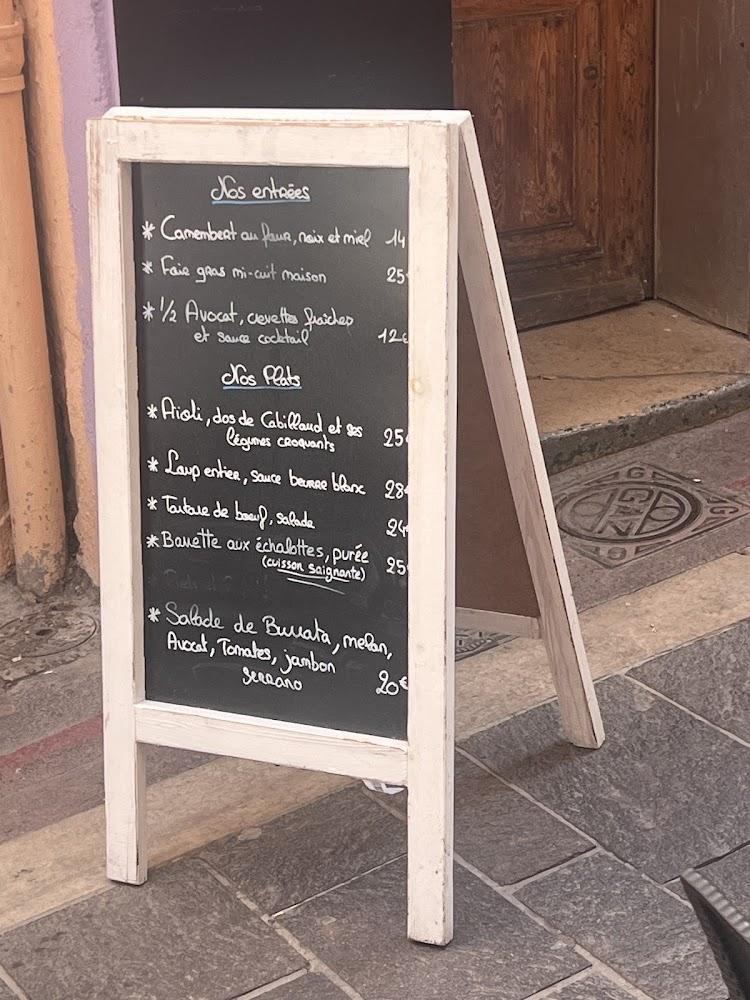 Nos entrées
* Camembert au four, noix et miel 14
* Foie gras mi-cuit maison 25
* 1/2 Avocat, crevettes fraîches
et sauce cocktail 12€
Nos Plats
* Aïoli, dos de Cabillaud et ses
légumes croquants 25€
* Loup entier, sauce beurre blanc 28€
* Tartare de bœuf, salade 24
* Bavette aux échalottes, purée
(cuisson saignante) 25€
* Salade de Burrata, melon,
Avocat, Tomates, jambon
Serrano 20€